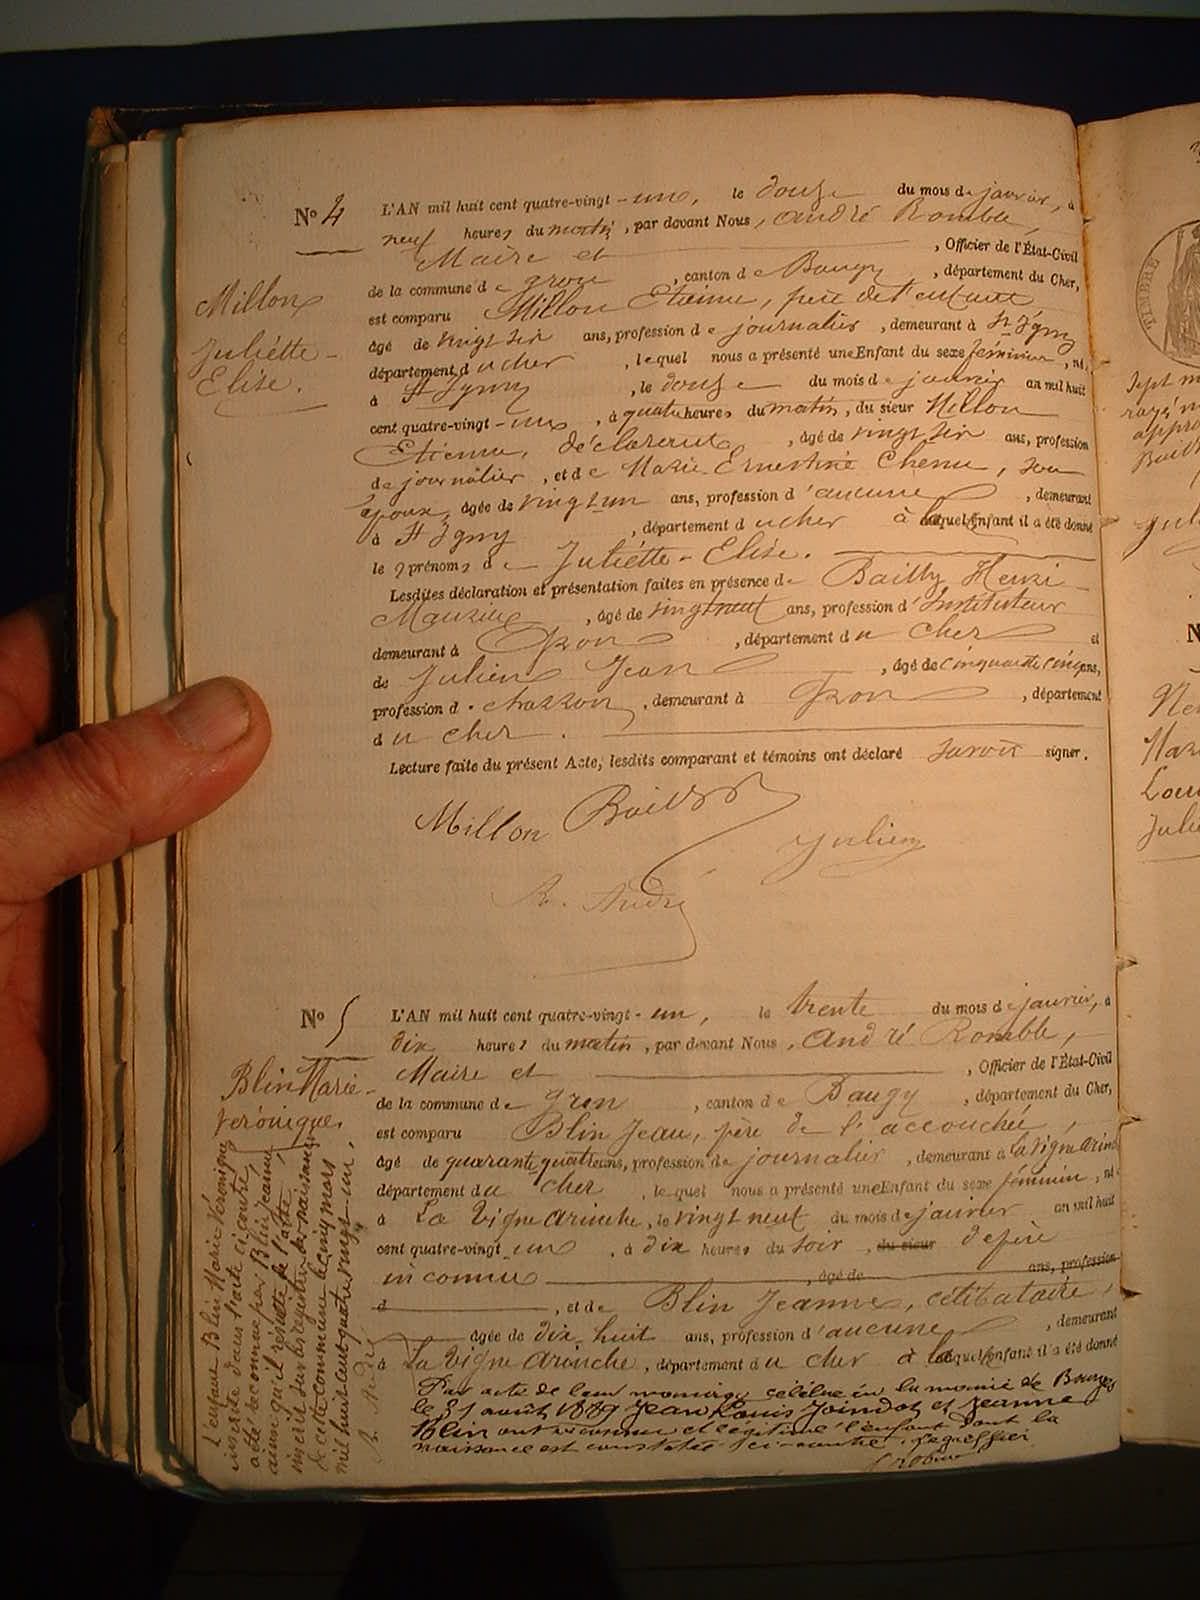 N° 4
Millon
Juliétte-
Elise.
L'AN mil huit cent quatre-vingt-une, le douze du mois de janvier, à
neuf heures du matin, par devant Nous, André Romble
Maire et , Officier de l'État-Civil
de la commune de gron , canton de Baugy , département du Cher,
est comparu Millon Etienne, père de l'enfant
âgé de vingt six ans, profession de journalier , demeurant à St Igny
département du cher , lequel nous a présenté un Enfant du sexe féminin , né
à St Igny , le douze du mois de janvier an mil huit
cent quatre-vingt-une , à quatre heures du matin , du sieur Millon
Etienne, déclarant , âgé de vingt six ans, profession
de journalier , et de Marie Ernestine Chenu, son
épouse, âgée de vingt un ans, profession d'aucune , demeurant
à St Igny , département du cher à laquel Enfant il a été donné
les prénoms de Juliétte-Elise.
Lesdites déclaration et présentation faites en présence de Bailly Henri
Maurice , âgé de vingt neuf ans, profession d'Instituteur
demeurant à Gron , département du Cher et
de Julien Jean , âgé de cinquante cinq ans,
profession de charron , demeurant à Gron , département
du cher.
Lecture faite du présent Acte, lesdits comparant et témoins ont déclaré savoir signer.
Millon Bailly
Julien
R. André
N° 5
Blin Marie-
Véronique.
L'AN mil huit cent quatre-vingt-un, le trente du mois de janvier, à
dix heures du matin , par devant Nous, André Romble,
Maire et , Officier de l'État-Civil
de la commune de gron , canton de Baugy , département du Cher,
est comparu Blin Jean, père de l'accouchée,
âgé de quarante quatre ans, profession de journalier , demeurant à la vigne arinche
département du cher , lequel nous a présenté un Enfant du sexe féminin , né
à La Vigne arinche , le vingt neuf du mois de janvier an mil huit
cent quatre-vingt une , à dix heures du soir , du sieur de père
inconnu , âgé de ans, profession
d , et de Blin Jeanne, célibataire,
âgée de dix-huit ans, profession d'aucune , demeurant
à La Vigne arinche , département du cher à laquel Enfant il a été donné
Par acte de leur mariage célébré en la mairie de Bourges
le 31 août 1889 Jean Louis Joindot et Jeanne
Blin ont reconnu et légitimé l'enfant dont la
naissance est constatée ci-contre. Le greffier
L'enfant Blin Marie Véronique
inscrite dans l'acte ci contre
a été reconnue par Blin Jeanne
ainsi qu'il résulte de l'acte
inscrit sur les registres de naissance
de cette commune le cinq mars
mil huit cent quatre vingt-un.
R. André
TIMBRE